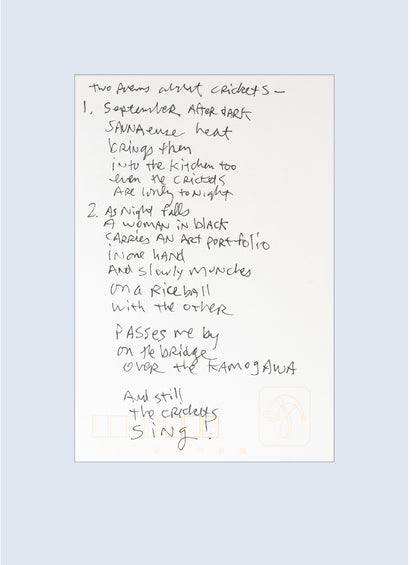 two poems about crickets —
1. September AFTER DARK
SAUNAeuse heat
brings them
into the kitchen too
even the crickets
ARE lonely tonight
2. As Night falls
A woman in black
CARRIES AN ART portfolio
in one hand
And slowly munches
on a Rice ball
with the other
PASSES me by
on the bridge
OVER the KAMOGAWA
And still
the crickets
SING!